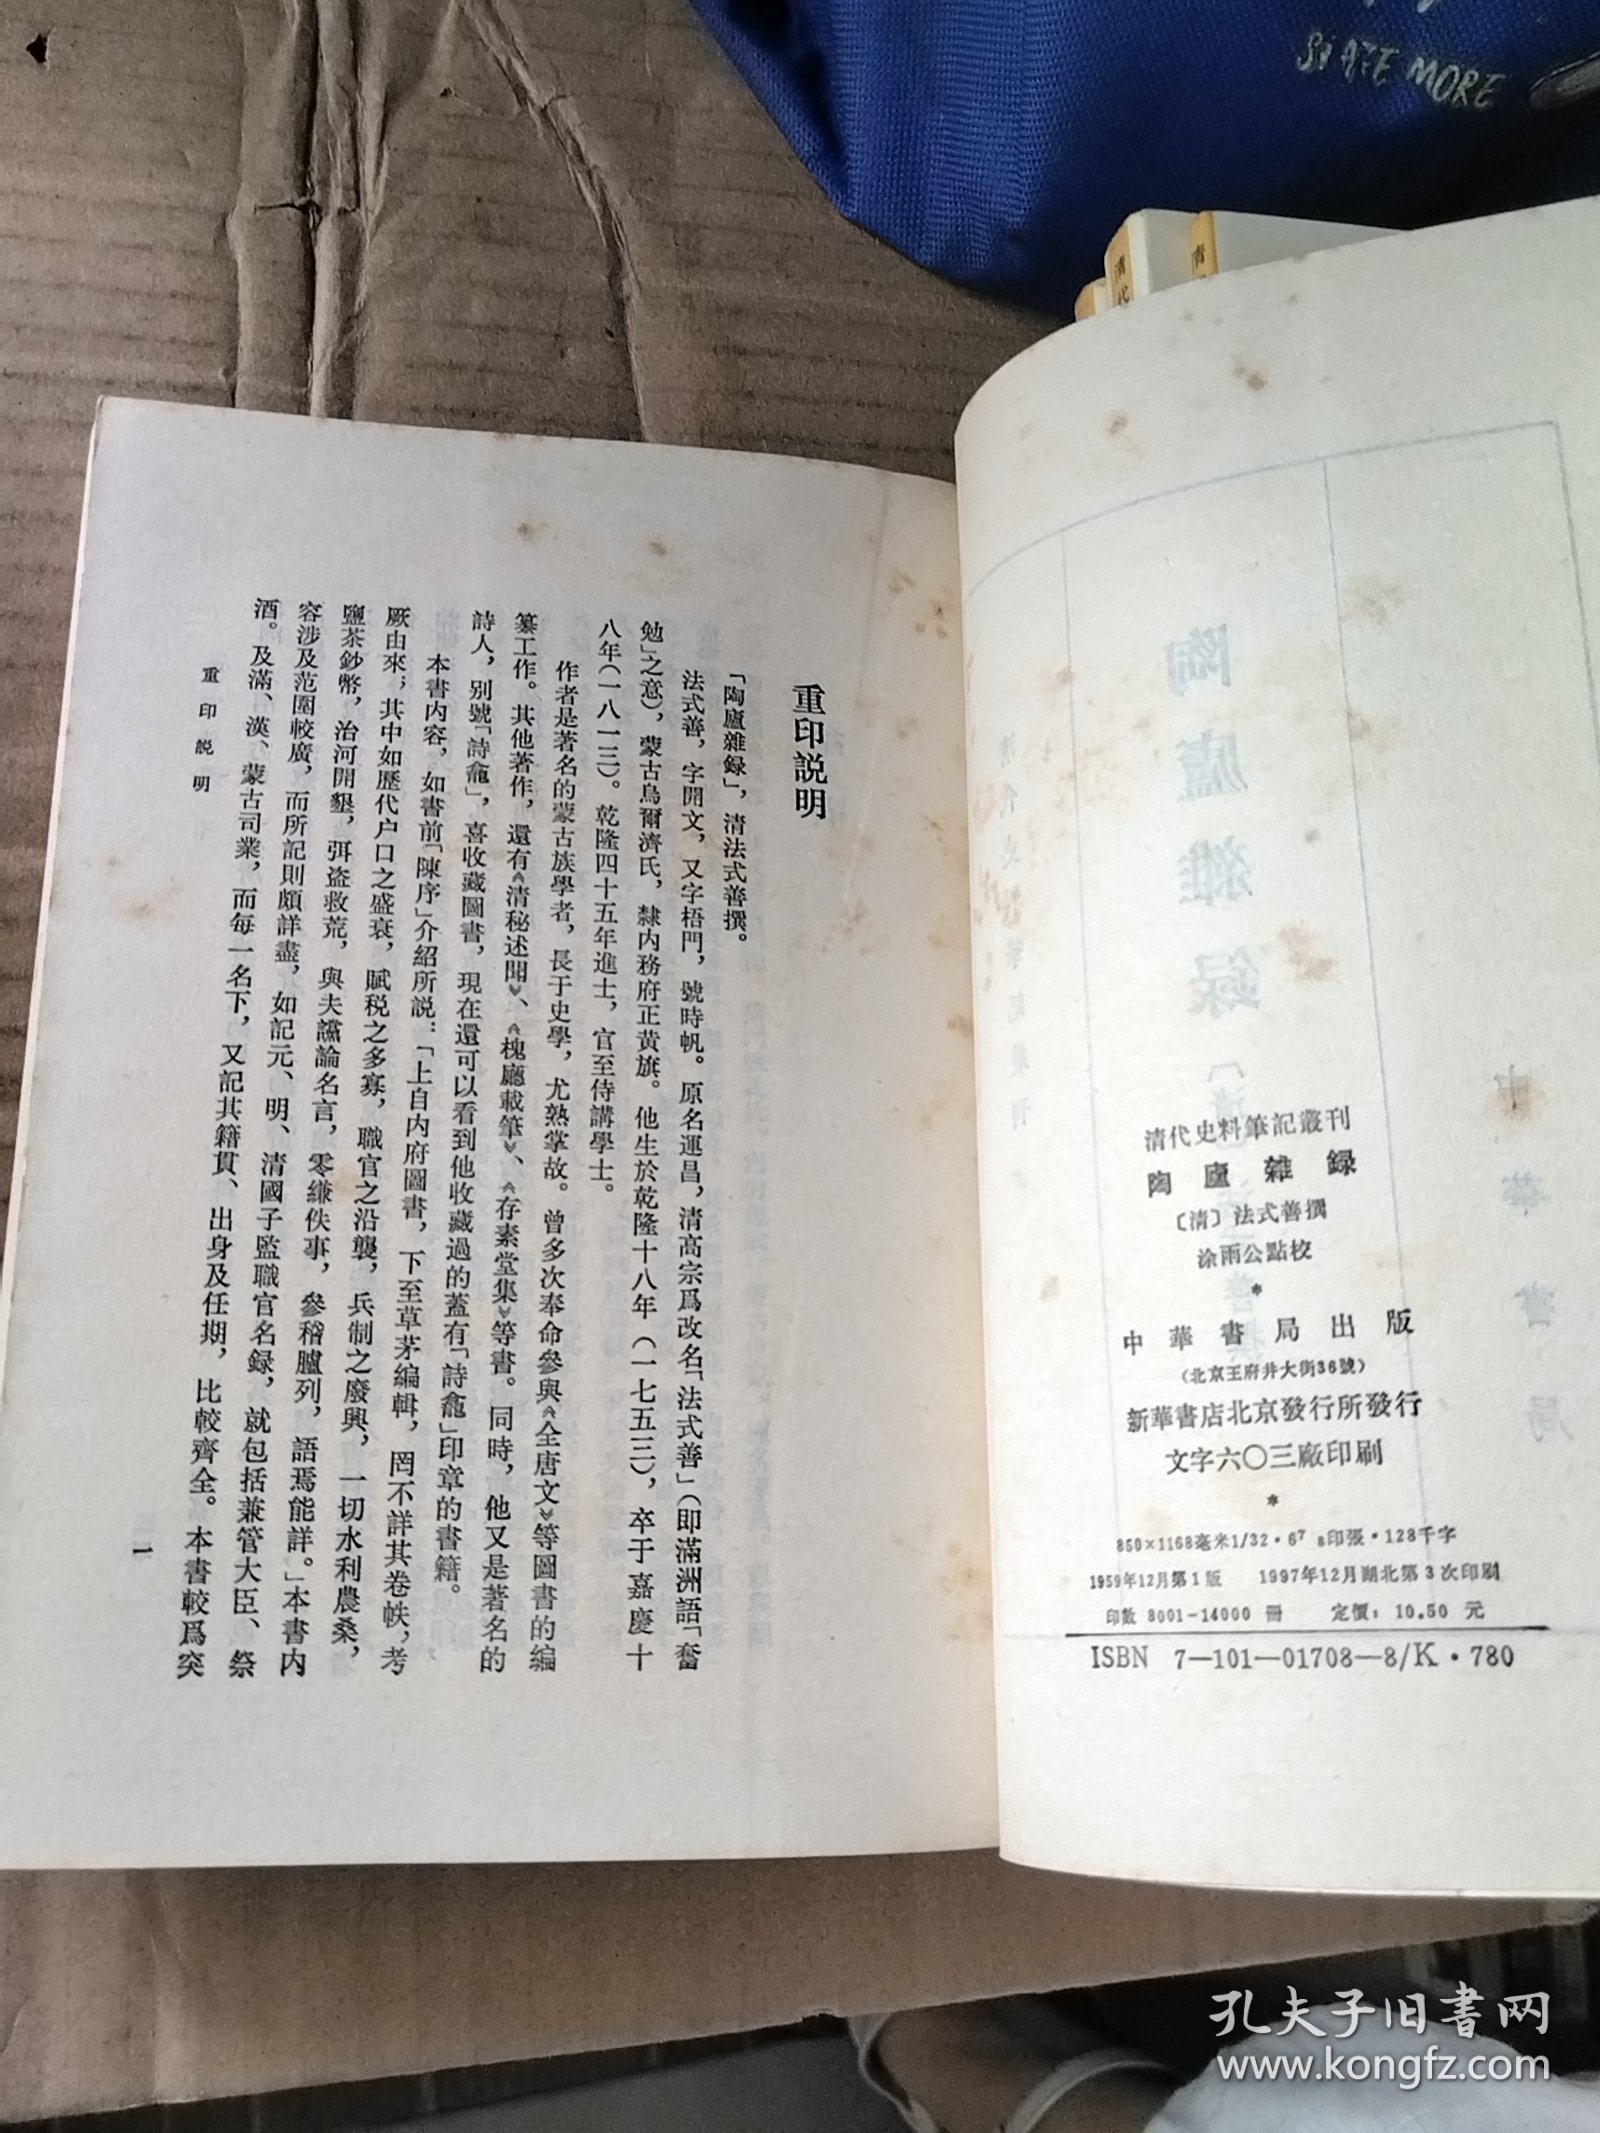 清代史料筆記叢刊
陶廬雜録
〔清〕法式善撰
涂雨公點校
*
中華書局出版
(北京王府井大街36號)
新華書店北京發行所發行
文字六〇三廠印刷
*
850×1168毫米1/32·6 7/8印張·128千字
1959年12月第1版 1997年12月湖北第3次印刷
印數 8001-14000 冊 定價：10.50 元
ISBN 7—101—01708—8/K·780
重印説明
「陶廬雜録」，清法式善撰。
法式善，字開文，又字梧門，號時帆。原名運昌，清高宗爲改名「法式善」（即滿洲語「奮
勉」之意），蒙古烏爾濟氏，隸内務府正黄旗。他生於乾隆十八年（一七五三），卒于嘉慶十
八年（一八一三）。乾隆四十五年進士，官至侍講學士。
作者是著名的蒙古族學者，長于史學，尤熟掌故。曾多次奉命參與《全唐文》等圖書的編
纂工作。其他著作，還有《清秘述聞》、《槐廳載筆》、《存素堂集》等書。同時，他又是著名的
詩人，别號「詩龕」，喜收藏圖書，現在還可以看到他收藏過的蓋有「詩龕」印章的書籍。
本書内容，如書前「陳序」介紹所説：「上自内府圖書，下至草茅編輯，罔不詳其卷帙，考
厥由來；其中如歷代户口之盛衰，賦税之多寡，職官之沿襲，兵制之廢興，一切水利農桑，
鹽茶鈔幣，治河開墾，弭盗救荒，與夫讜論名言，零縑佚事，參稽臚列，語焉能詳。」本書内
容涉及范圍較廣，而所記則頗詳盡，如記元、明、清國子監職官名録，就包括兼管大臣、祭
酒。及滿、漢、蒙古司業，而每一名下，又記其籍貫、出身及任期，比較齊全。本書較爲突
重印説明
一
清代
清
MORE
孔夫子旧書网
www.kongfz.com